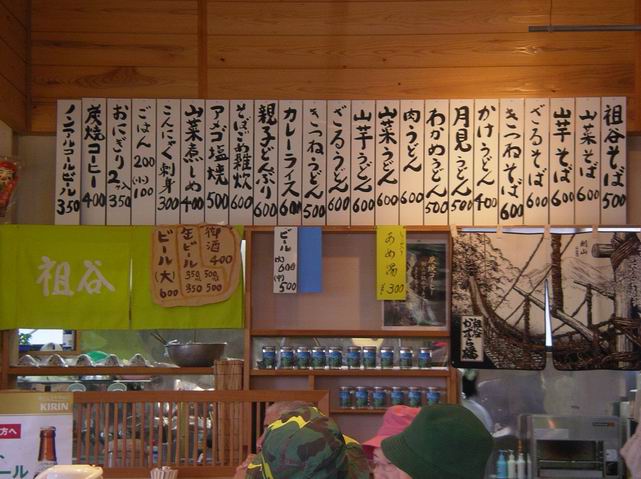 祖谷そば 500
山菜そば 600
山芋そば 600
ざるそば 600
きつねそば 600
かけうどん 400
月見うどん 500
わかめうどん 500
肉うどん 600
山菜うどん 600
山芋うどん 600
ざるうどん 600
きつねうどん 500
カレーライス 600
親子どんぶり 600
そばごめ雑炊 600
アメゴ塩焼 500
山菜煮しめ 400
こんにゃく刺身 300
ごはん 200 (小)100
おにぎり2ヶ入 350
炭焼コーヒー 400
ノンアルコールビール 350
祖谷
御酒 400
缶ビール 350 500
350 500
ビール(大) 600
ビール
(大) 600
(中) 500
あめ湯
¥300
剣山
祖谷
かずら橋
KIRIN
方へ
ール